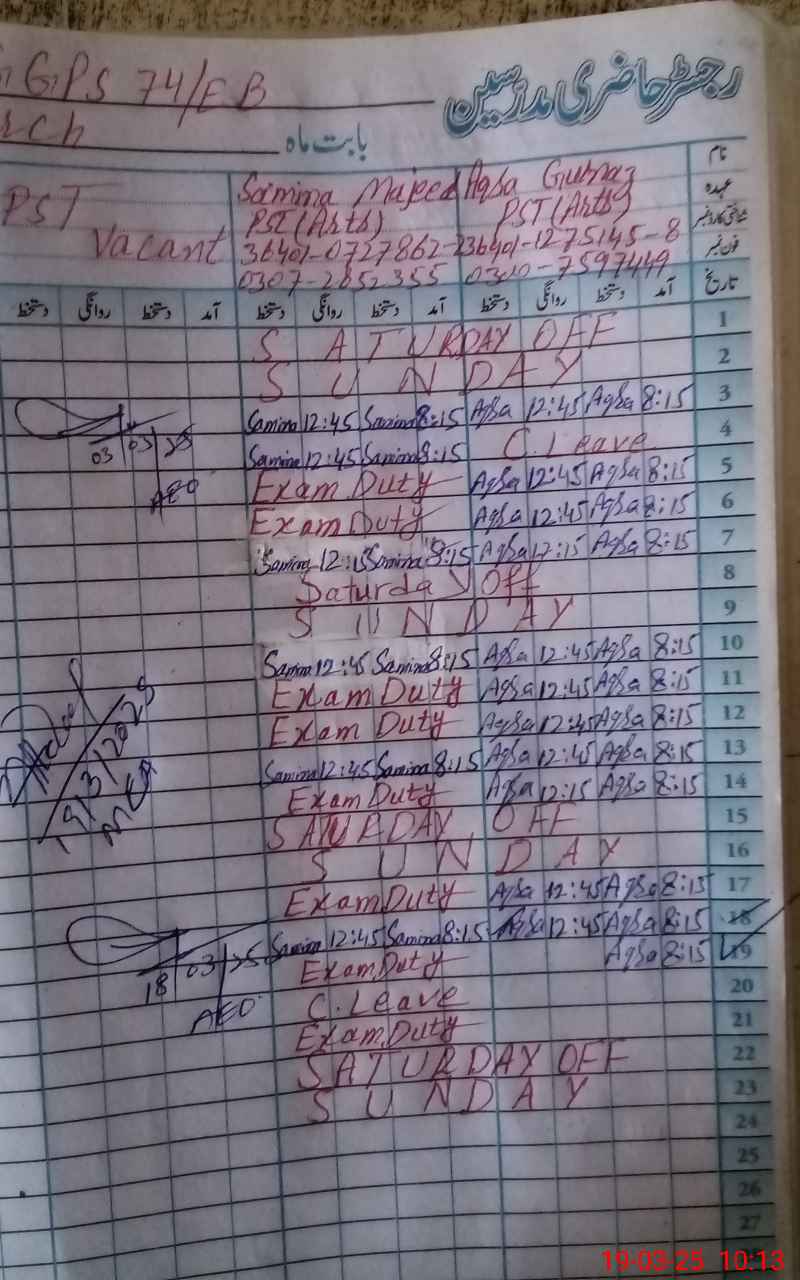 GGPS 74/EB
رجسٹر حاضری مدرسین
rch
بابت ماہ
نام
Samina Majeed Aqsa Gulnaz
عہدہ
PST PST(Arts) PST(Arts)
شناختی کارڈ نمبر
Vacant 36401-0727862-2 36401-1275145-8
فون نمبر
0307-2852355 0300-7597449
تاریخ
آمد دستخط روانگی دستخط آمد دستخط روانگی دستخط آمد دستخط روانگی دستخط
SATURDAY OFF 1
SUNDAY 2
Samina 12:45 Samina 8:15 Aqsa 12:45 Aqsa 8:15 3
03 03 25
Samina 12:45 Samina 8:15 C.Leave 4
AEO
Exam Duty Aqsa 12:45 Aqsa 8:15 5
Exam Duty Aqsa 12:45 Aqsa 8:15 6
Samina 12:15 Samina 8:15 Aqsa 12:15 Aqsa 8:15 7
Saturday Off 8
SUNDAY 9
Samina 12:45 Samina 8:15 Aqsa 12:45 Aqsa 8:15 10
Exam Duty Aqsa 12:45 Aqsa 8:15 11
Exam Duty Aqsa 12:45 Aqsa 8:15 12
Samina 12:45 Samina 8:15 Aqsa 12:45 Aqsa 8:15 13
Exam Duty Aqsa 12:15 Aqsa 8:15 14
19/3/2025
SATURDAY OFF 15
SUNDAY 16
Exam Duty Aqsa 12:45 Aqsa 8:15 17
Samina 12:45 Samina 8:15 Aqsa 12:45 Aqsa 8:15 18
18 03 25
Exam Duty Aqsa 8:15 19
AEO
C.Leave 20
Exam Duty 21
SATURDAY OFF 22
SUNDAY 23
24
25
26
27
19-03-25 10:13